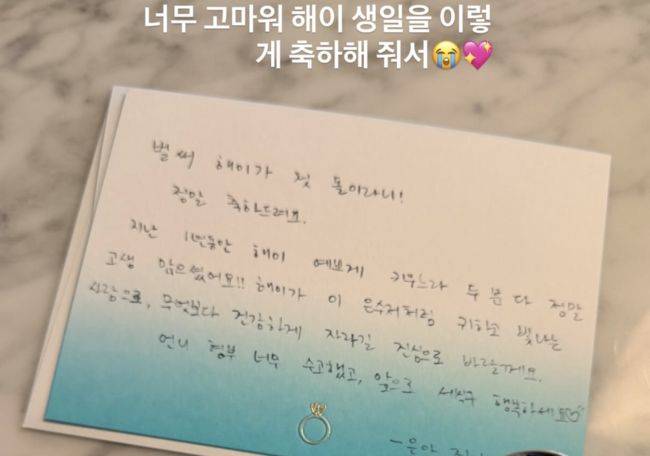 너무 고마워 해이 생일을 이렇
게 축하해 줘서😭💖
벌써 해이가 첫 돌이라니!
정말 축하드려요.
지난 1년동안 해이 예쁘게 키우느라 두 분 다 정말
고생 많으셨어요!! 해이가 이 은수저처럼 귀하고 빛나는
사람으로, 무엇보다 건강하게 자라길 진심으로 바랄게요.
언니 형부 너무 수고했고, 앞으로 세식구 행복하세요♡
-은아